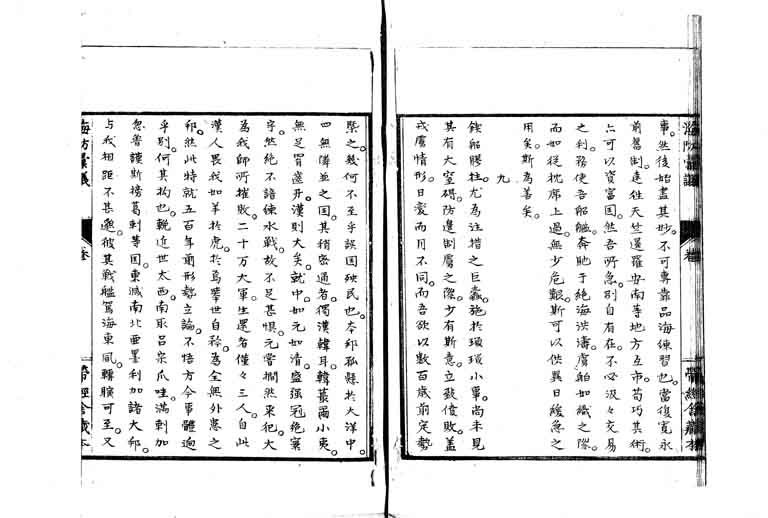 事。然後始盡其妙。不可專靠品海練習也。當復寬永
前舊制。遠往天竺暹羅安南等地方互市。苟巧其術。
亦可以資富国。然吾所急。別自有在。不必汲々交易
之利。務使吾船艦。奔馳于絶海洪濤。賡舶如織之際。
而如従枕席上過。無少危艱。斯可以供異日緩急之
用矣。斯為善矣。
九
鉸船膠柱。尤為注措之巨蠧。施於瑣瑣小軍。尚未見
其有大窒碍。防邊制虜之際。少有斯意。立致僨敗。蓋
戎虜情形。日變而月不同。而吾欲以数百歳前定勢
槩之。幾何不至乎誤国殃民也。本邦孤縣於大洋中。
四無隣並之国。其稍密通者。獨漢韓耳。韓蕞爾小夷。
無足冒邊丹。漢則大矣。就中。如元如清。盛强冠絶寰
宇。然絶不諳練水戰。故不足甚惧。元嘗擱然来犯大
為我師所摧敗。二十万大軍。生還者僅々三人。自此
漢人畏我如羊於虎。於焉舉世自矜。為全無外患之
邦。然此特就五百年前形勢立論。不悟方今事體迥
乎別。何其拘也。輓近世太西。南取呂宋爪哇。満剌加
忽魯謨斯榜葛剌等国。東滅南北亜墨利加諸大邦。
与我相距不甚邈。彼其戰艦駕海東風。轉瞬可至。又
海防彙議
巻
帶經舎蔵本